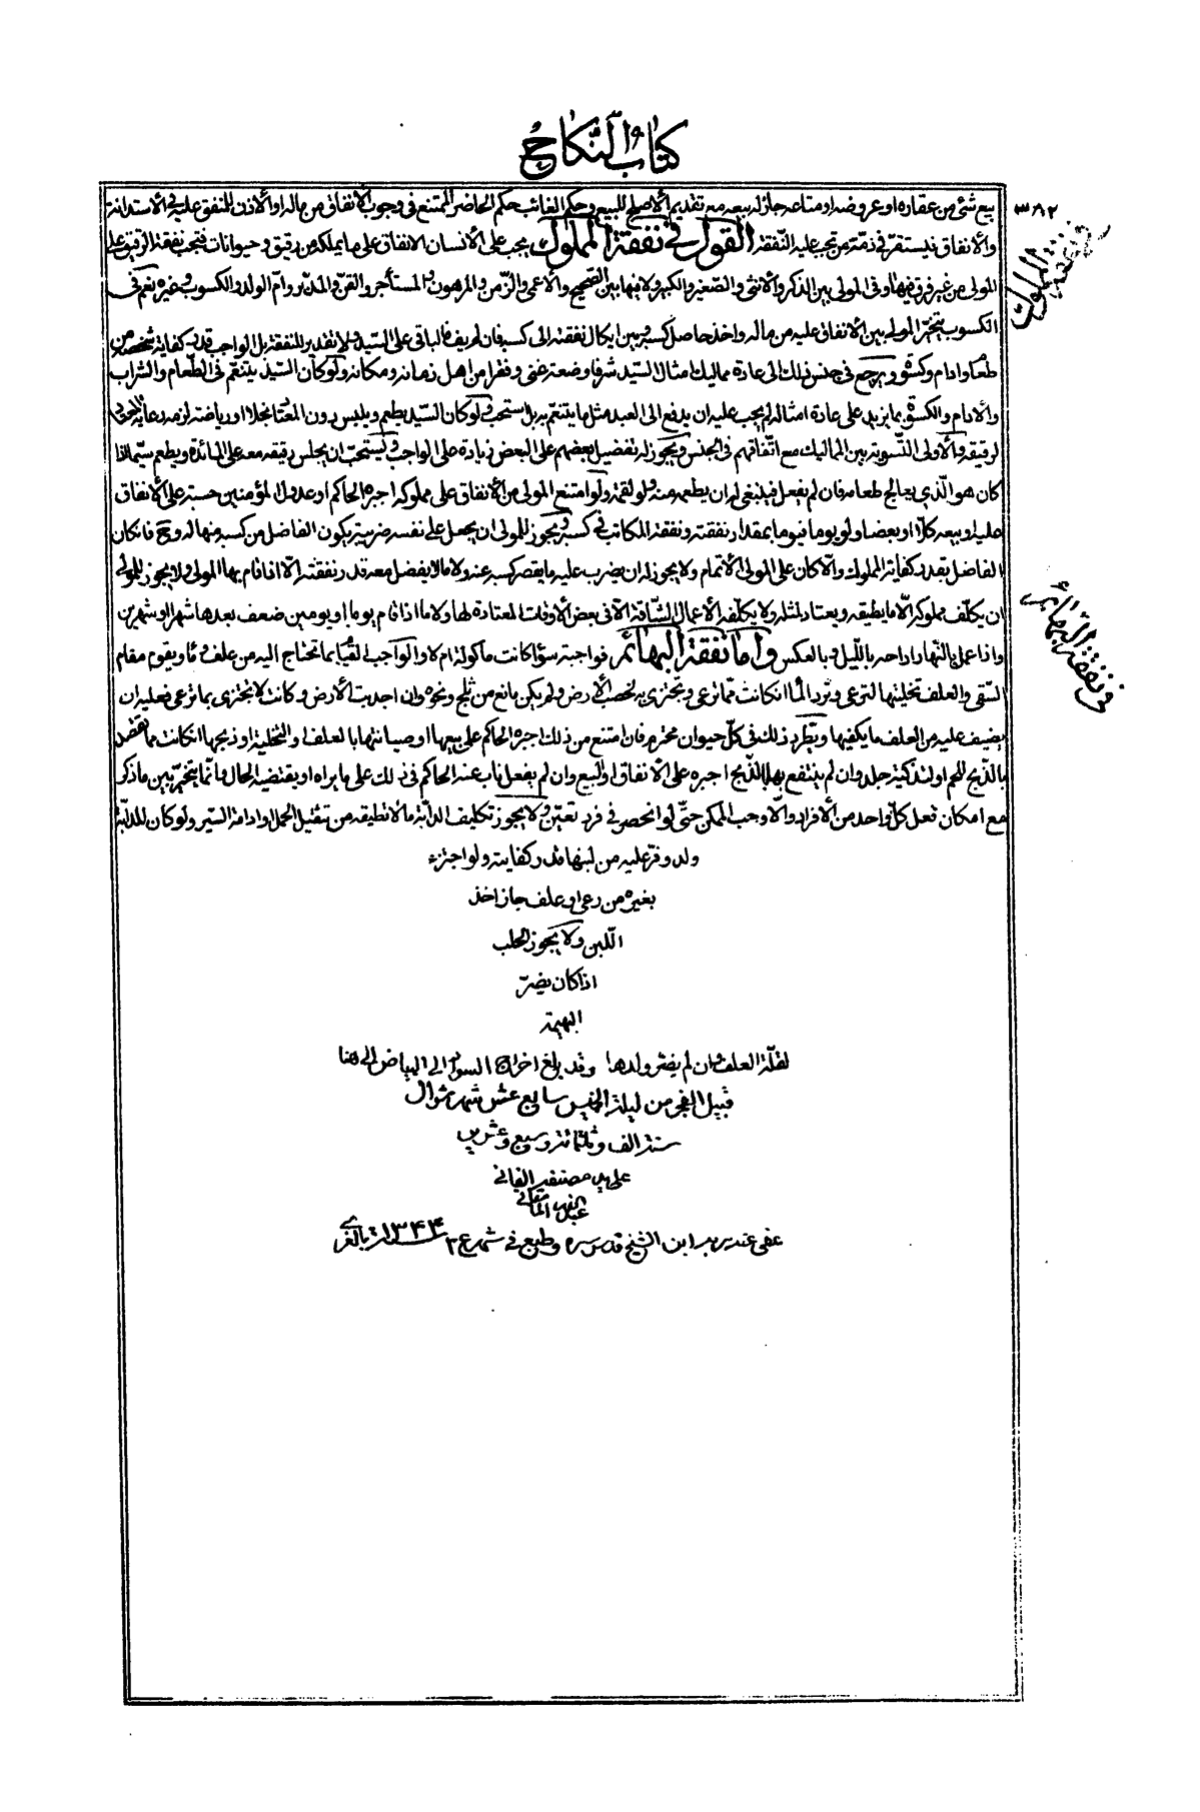 كتاب النكاح
٣٨٢
بيع شئ من عقاره او عروضه او متاعه جاز له بيعه مع تقديم الأصلح للبيع وحكم الغائب حكم الحاضر الممتنع فى وجوب الانفاق من ماله او الأذن للمنفق عليه فى الأستدانة
والأنفاق فيستقرّ فى ذمّته من تجب عليه النّفقة القول فى نفقة المملوك يجب على الأنسان الانفاق على ما يملكه من رقيق وحيوانات فتجب نفقة الرّقيق على
فى نفقة المملوك
المولى من غير فرق فيها وفى المولى بين الذكر والأنثى والصّغير والكبير ولا فيها بين الصّحيح والأعمى والزّمن والمرهون والمستأجر والقنّ والمدبّر وامّ الولد والكسوب وغيره نعم فى
الكسوب يتخيّر المولى بين الأنفاق عليه من ماله واخذ حاصل كسبه وبين ايكال نفقته الى كسبه فان لم يف فالباقى على السّيد ولا تقدير للنفقة بل الواجب قدر كفاية شخصه من
طعام وادام وكسوة ويرجع فى جنس ذلك الى عادة مماليك امثال السّيد شرفا وضعة غنى وفقرا من اهل زمانه ومكانه ولو كان السّيد يتنعّم فى الطّعام والشراب
والأدام والكسوة بما يزيد على عادة امثاله لم يجب عليه ان يدفع الى العبد مثل ما يتنعّم به بل يستحب ولو كان السّيد يطعم ويلبس دون المعتاد بخلا او رياضة لزمه رعاية
لرقيقه والأولى التّسوية بين المماليك مع اتّفاقهم فى الجنس ويجوز له تفضيل بعضهم على البعض زيادة على الواجب ويستحبّ ان يجلس رقيقه معه على المائدة ويطعم سيّما اذا
كان هو الّذى يعالج طعامه فان لم يفعل فينبغى له ان يطعمه منه ولو لقمة ولو امتنع المولى من الأنفاق على مملوكه اجبره الحاكم او عدول المؤمنين حسبة على الأنفاق
عليه او بيعه كلّا او بعضا ولو يوما فيوما بمقدار نفقته ونفقة المكاتب فى كسبه ويجوز للمولى ان يجعل على نفسه ضريبة يكون الفاضل من كسبه منها له وح فان كان
الفاضل بقدر كفاية المملوك والّا كان على المولى الأتمام ولا يجوز له ان يضرب عليه ما يقصر كسبه عنه ولا ما لا يفضل معه قدر نفقته الّا اذا قام بها المولى ولا يجوز للمولى
ان يكلّف مملوكه الّا ما يطيقه ويعتاد لمثله ولا يكلّفه الأعمال الشّاقة الّا فى بعض الأوقات المعتادة لها ولا ما اذا قام يوما او يومين ضعف بعدها شهرا او شهرين
واذا عمل بالنّهار اراحه بالليل وبالعكس وامّا نفقة البهائم فواجبة سواء كانت مأكولة ام لا والواجب القيام بما تحتاج اليه من علف وماء ويقوم مقام
فى نفقة البهائم
السّقى والعلف تخليتها لترعى وترد الماء ان كانت ممّا ترعى وتجتزى به لخصب الأرض ولم يكن مانع من ثلج ونحوه وان اجدبت الأرض وكانت لا تجتزى بما ترعى فعليه ان
يضيف عليه من العلف ما يكفيها ويطّرد ذلك فى كلّ حيوان محترم فان امتنع من ذلك اجبره الحاكم على بيعها او صيانتها بالعلف او التّخلية او ذبحها ان كانت مما تقصد
بالذّبح للحم او لتذكية جلد وان لم ينتفع بها بالذّبح اجبره على الأنفاق او البيع وان لم يفعل ناب عنه الحاكم فى ذلك على ما يراه او يقتضيه الحال وانّما يتخيّر بين ما ذكر
مع امكان فعل كلّ واحد من الأفراد والّا وجب الممكن حتّى لو انحصر فى فرد تعيّن ولا يجوز تكليف الدابّة ما لا تطيقه من تثقيل الحمل او ادامة السّير ولو كان للدابّة
ولد وفّر عليه من لبنها قدر كفايته ولو اجتزء
بغيره من رعى او علف جاز اخذ
اللبن ولا يجوز الحلب
اذا كان يضرّ
البهيمة
لقلّة العلف وان لم يضر ولدها وقد بلغ اخراج السواد الى البياض الى هنا
قبيل الفجر من ليلة الخميس سابع عشر شهر شوال
سنة الف وثلثمائة وسبع وعشرين
على يد مصنفه الفانى
عبد الله المامقانى
عفى عنه ربه ابن الشيخ قدس سره وطبع فى شهر ع٢ سنة ١٣٤٤ بالغرى